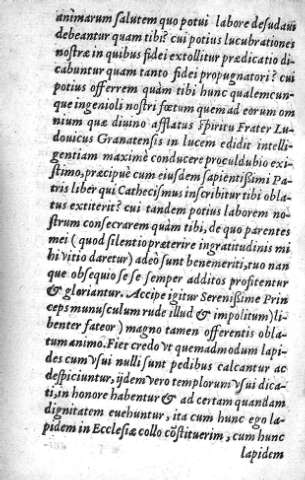 animarum salutem quo potui labore desudaui
debeantur quam tibi? cui potius lucubrationes
nostræ in quibus fidei extollitur prædicatio di-
cabuntur quam tanto fidei propugnatori? cui
potius offerrem quàm tibi hunc qualemcun-
que ingenioli nostri fœtum quem ad eorum om
nium quæ diuino afflatus Spiritu Frater Lu-
douicus Granatensis in lucem edidit intelli-
gentiam maximè conducere proculdubio exi-
stimo, præcipuè cum eiusdem sapientissimi Pa-
tris liber qui Cathecismus inscribitur tibi obla-
tus extiterit? cui tandem potius laborem no-
strum consecrarem quàm tibi, de quo parentes
mei (quod silentio præterire ingratitudinis mi
hi vitio daretur) adeò sunt benemeriti, tuo nan
que obsequio se se semper additos profitentur
& gloriantur. Accipe igitur Serenissime Prin
ceps munusculum rude illud & impolitum) li-
benter fateor) magno tamen offerentis obla-
tum animo. Fiet credo vt quemadmodum lapi-
des cum vsui nulli sunt pedibus calcantur ac
despiciuntur, ijdem vero templorum vsui dica-
ti, in honore habentur & ad certam quandam
dignitatem euehuntur, ita cum hunc ego la-
pidem in Ecclesiæ collo cõstituerim, cum hunc
lapidem